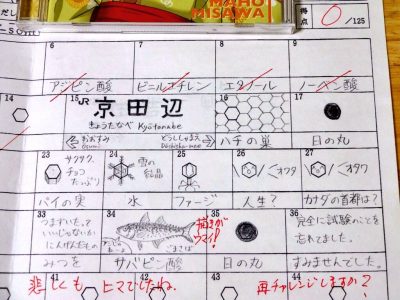 MAHO
MISAWA
得点 0 /125
6 7 8 9
アジピン酸 ビニルエチレン エタノール ノーベン酸
14 15 16 17
JR 京田辺
きょうたなべ Kyōtanabe
おおすみ
Ōsumi
どうししゃまえ
Dōshisha-mae
ハチの巣 日の丸
23 24 25 26 27
サクサク、
チョコ
たっぷり
雪の
結晶
パイの実 水 ファージ 人生? カナダの首都は?
オワ オタワ
33 34 35 36
つまずいたって
いいじゃないか
にんげんだもの
ごまさば
描きが
ウマイ!
完全に試験のことを
忘れてました。
みつを サバピン酸 日の丸 すみませんでした。
悲しくもヒマでしたね。
再チャレンジしますか?
41 42 43 44